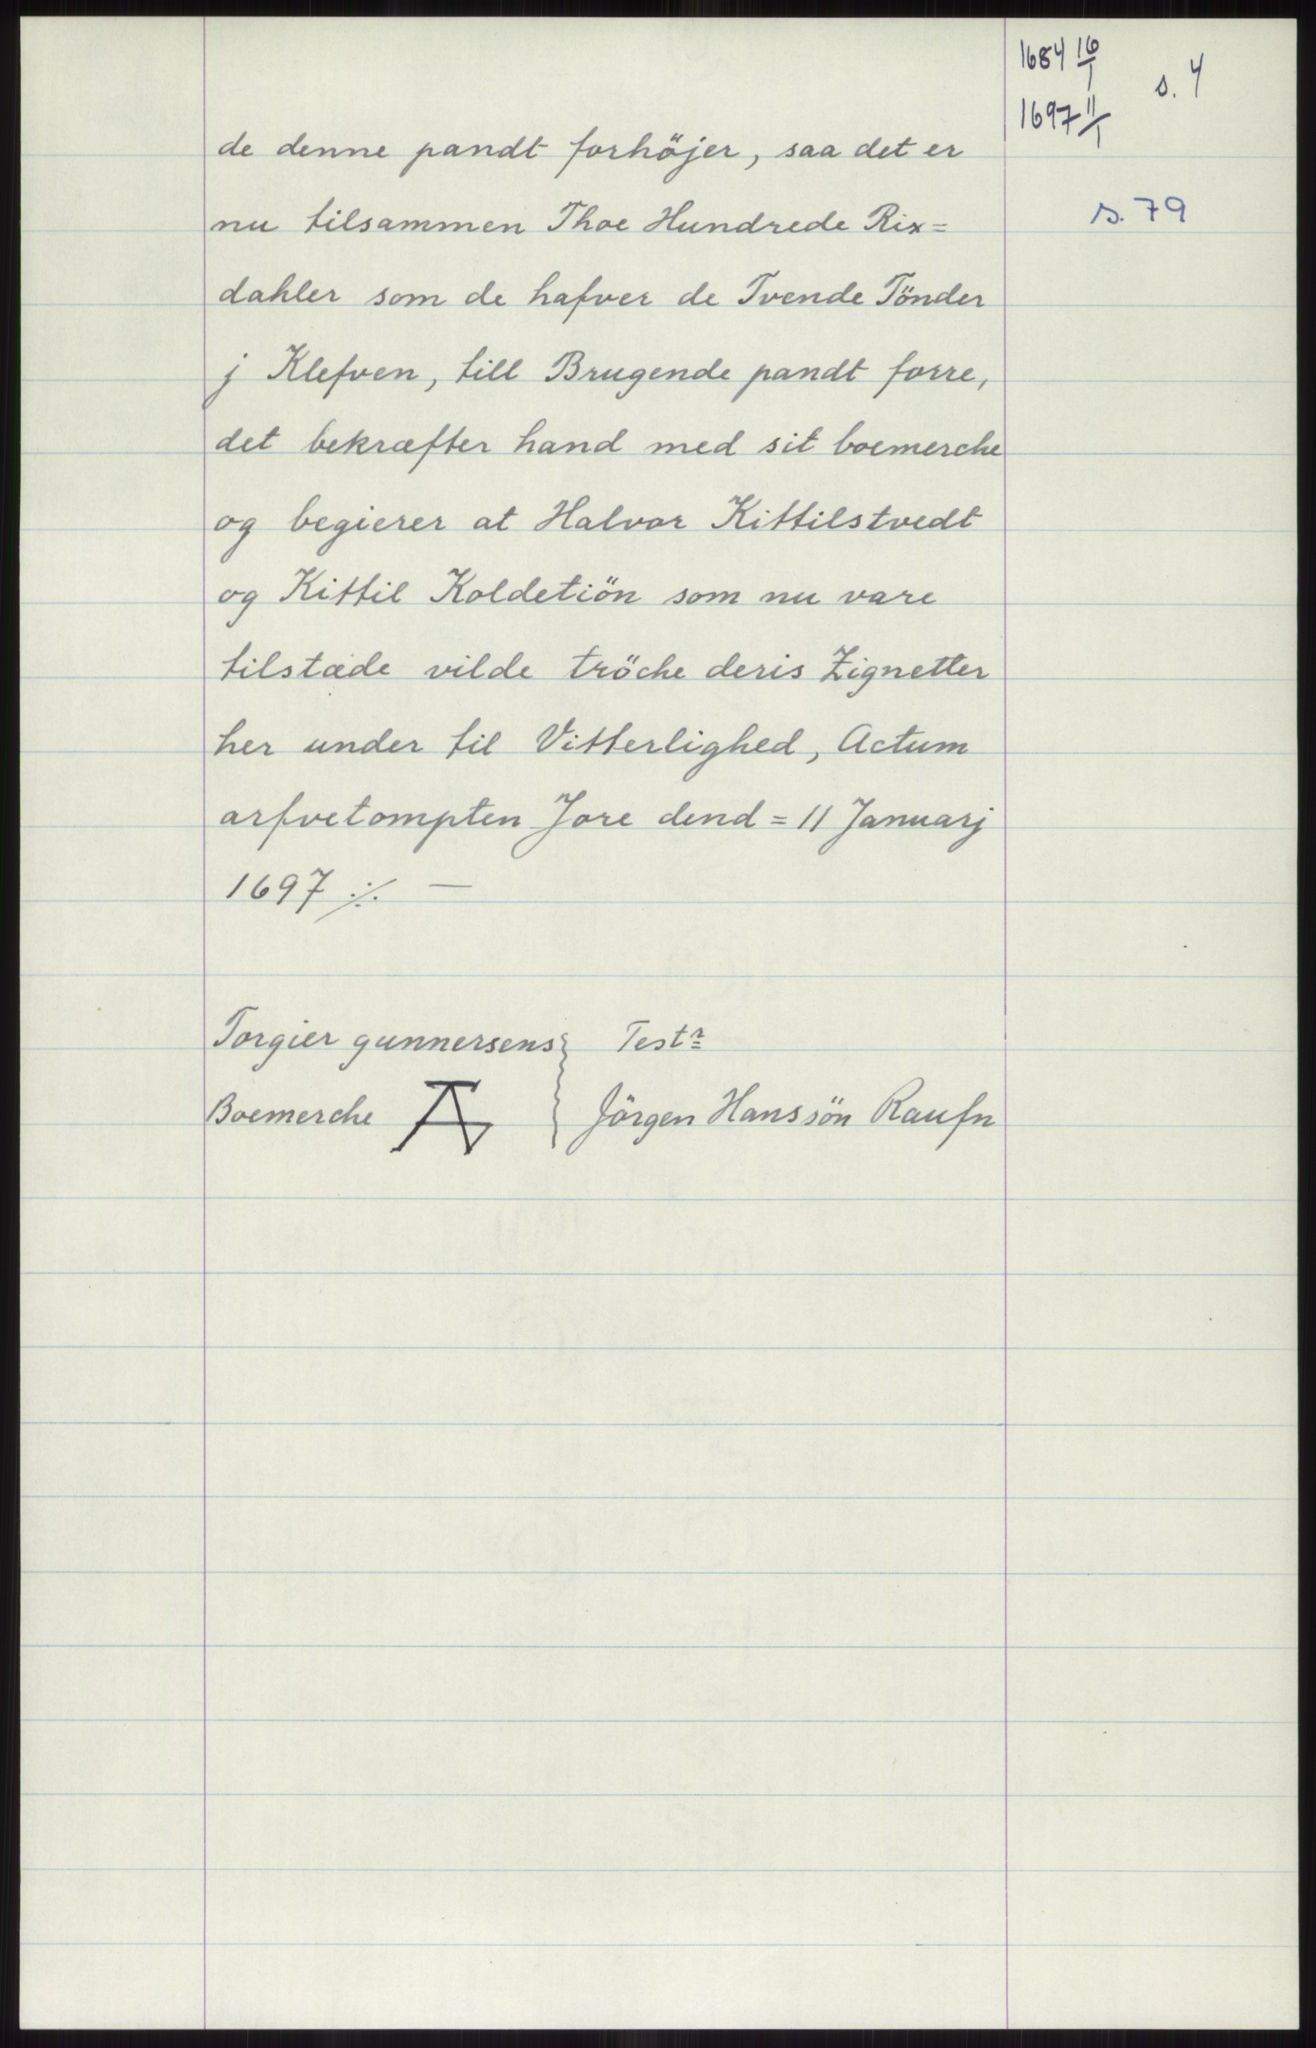 1684 16/1
s. 4
1697 11/1
s. 79
de denne pandt forhöjer, saa det er
nu tilsammen Thoe Hundrede Rix=
dahler som de hafver de Tvende Tönder
j Klefven, till Brugende pandt forre,
det bekræfter hand med sit boemerche
og begierer at Halvor Kittilstvedt
og Kittil Koldetiön som nu vare
tilstæde vilde tröche deris Zignetter
her under til Vitterlighed, Actum
arfvetompten Jore dend = 11 Januarj
1697 ⁒ —
Torgier gunnersens
Boemerche
Testr
Jörgen Hanssön Raufn